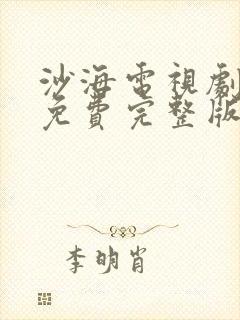 沙海電視劇
免費完整版
李明肖